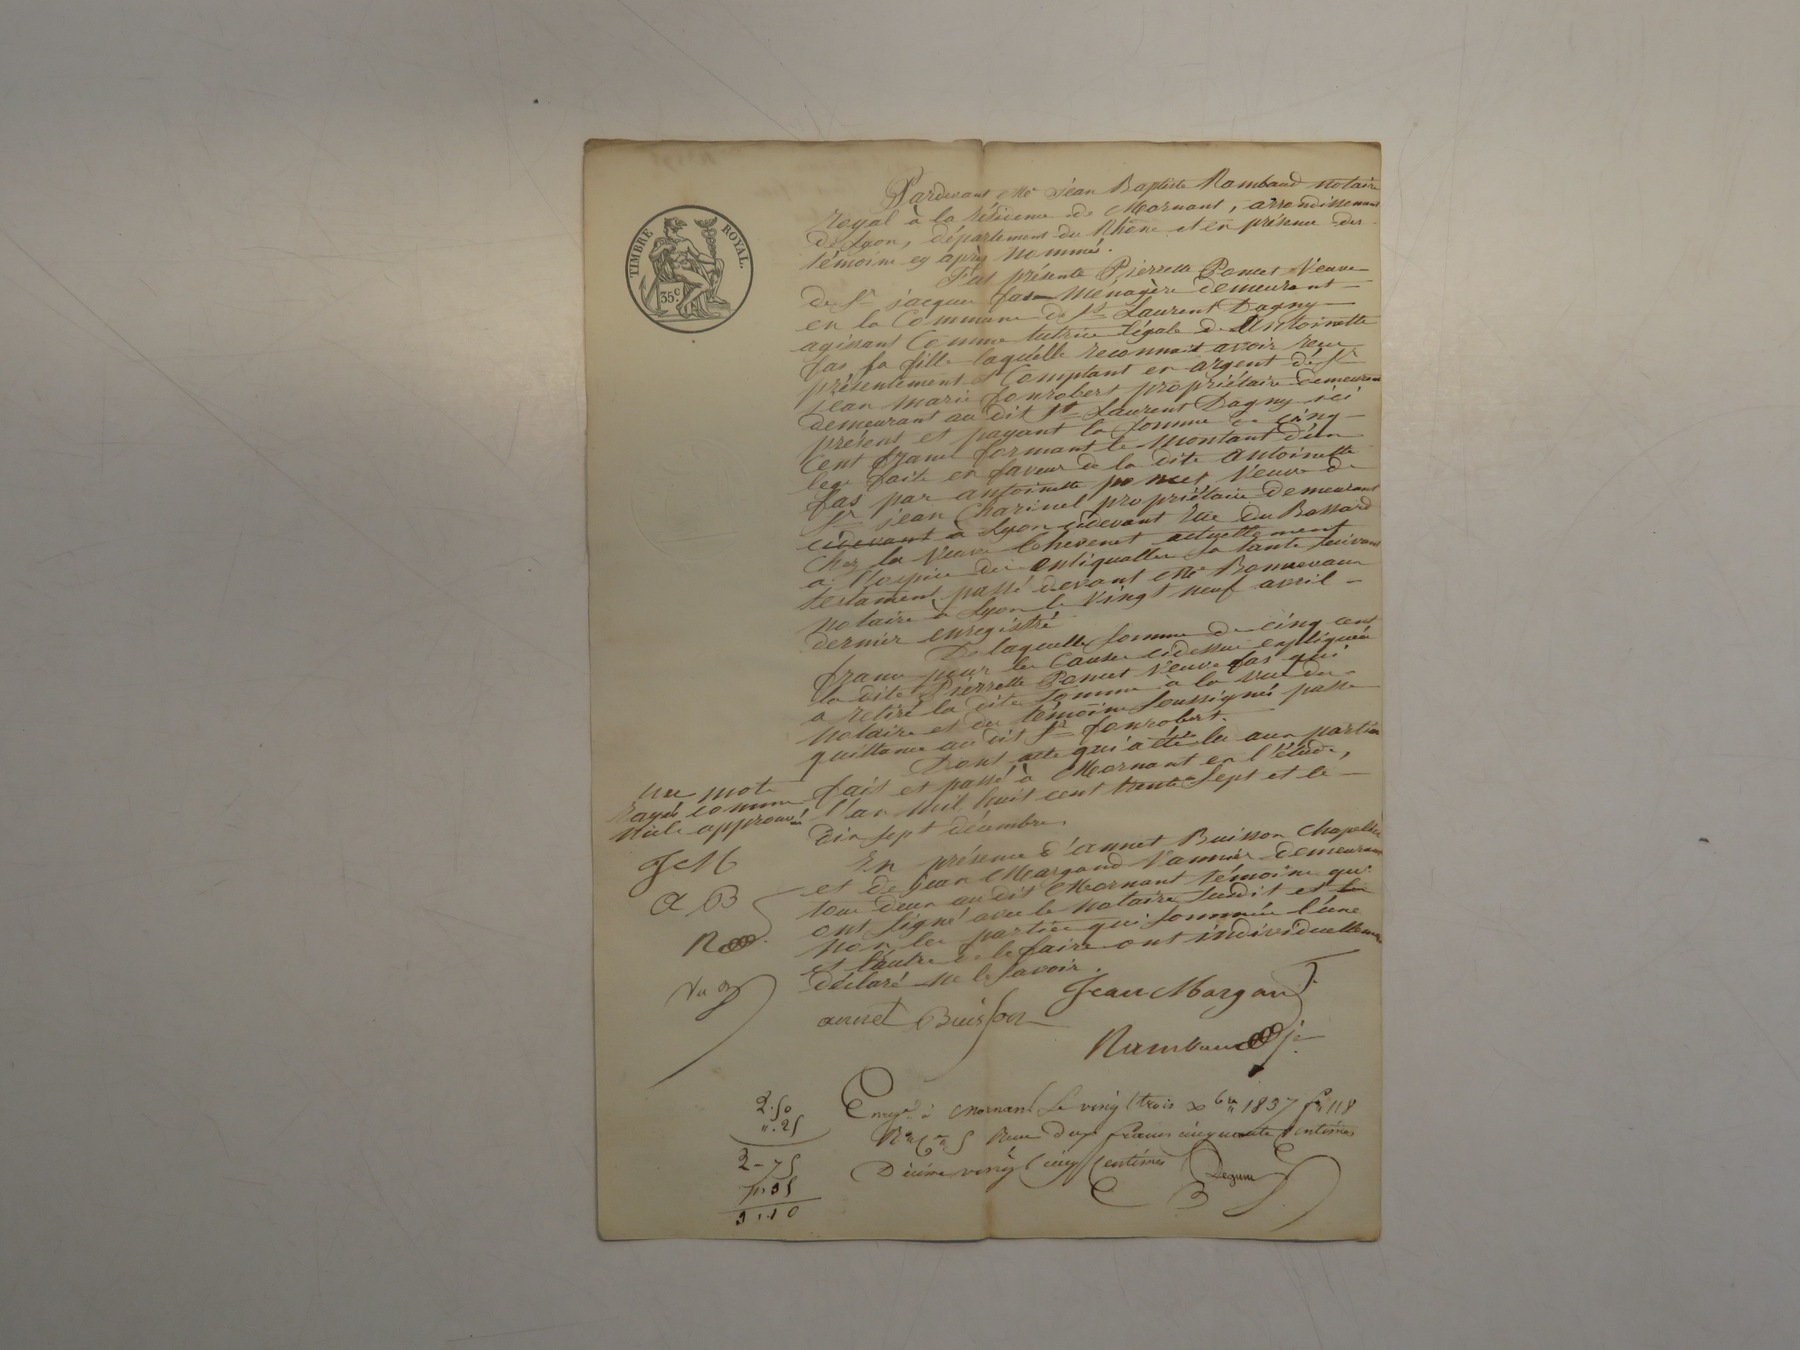 TIMBRE ROYAL.
35 c.
Pardevant Me jéan Baptiste Rambaud notaire
royal à la résidence de Mornant, arrondissement
de Lyon, département du Rhône et en présence des
témoins cy après nommés.
Fut présente Pierrette Poncet Veuve
de Sr jacques fas Ménagère demeurant
en la Commune de St Laurent Dagny
agissant Comme tutrice légale de Antoinette
fas sa fille laquelle reconnait avoir reçu
présentement et Comptant en argent dé Sr
jéan marie fonrobert propriétaire demeurant
demeurant au dit St Laurent Dagny ici
présent et payant la somme de cinq
Cent francs formant le montant d'un
legs faite en faveur de la dite antoinette
fas par antoinette poncet Veuve de
Sr jéan Charinel propriétaire demeurant
cidevant à Lyon cidevant rue du Bassard
Chez la Veuve Chevenet actuellement
a l'hospice des entiquailles sa tante suivant
testament passé devant Me Bonnevaux
notaire à Lyon le Vingt neuf avril
dernier enregistré
De laquelle somme de cinq cent
francs pour les Causes cidessus expliquées
la dite Pierrette Poncet Veuve fas qui
a retiré la dite somme à la vue du
notaire et des témoins soussignés passe
quittance au dit Sr fonrobert.
Dont acte qui a été lu aux parties
fait et passé à Mornant en l'étude,
l'an mil huit cent trente sept et le
dix sept décembre.
un mot
rayé comme
nul approuvé
En présence d'annet Buisson Chapelier
et de jean Margand Vannier demeurant
tous deux au dit Mornant témoins qui
ont signé avec le notaire susdit et
non les parties qui sommées l'une
et l'autre de le faire ont individuellement
déclaré ne le savoir.
J M
A B
R
Jean Margand
annet Buisson
Rambaud
Enregé à Mornant le vingt trois xbre 1837 fo 118
Ro Ce 5 Reçu deux francs cinquante centimes
Décime vingt cinq centimes
2.50
".25
2-75
".35
3.10